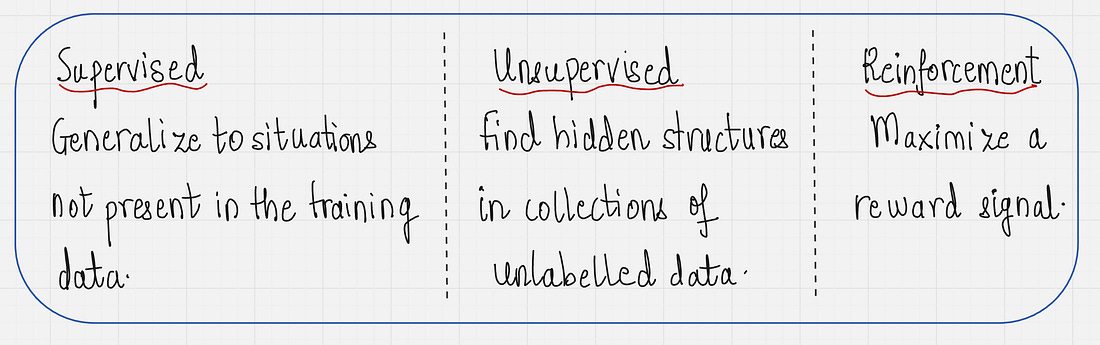 Supervised
Generalize to situations
not present in the training
data.
Unsupervised
find hidden structures
in collections of
unlabelled data.
Reinforcement
Maximize a
reward signal.